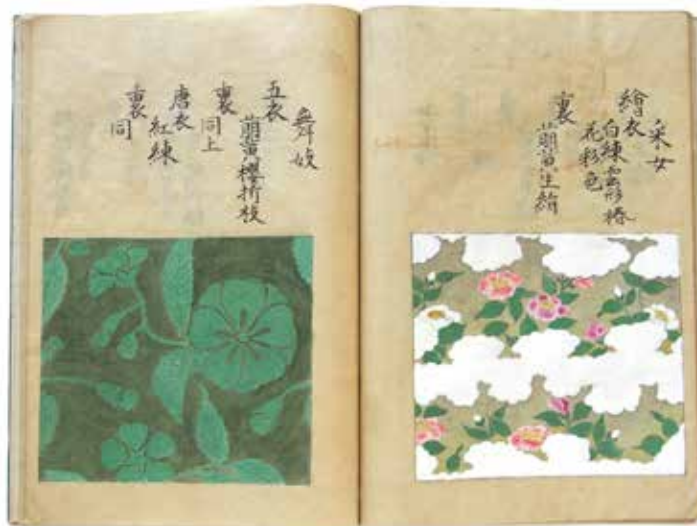 采女
繪衣
白練雲形椿
花彩色
裏
萠黄生絹
舞妓
五衣
萠黄櫻折枝
裏
同上
唐衣
紅練
裏
同